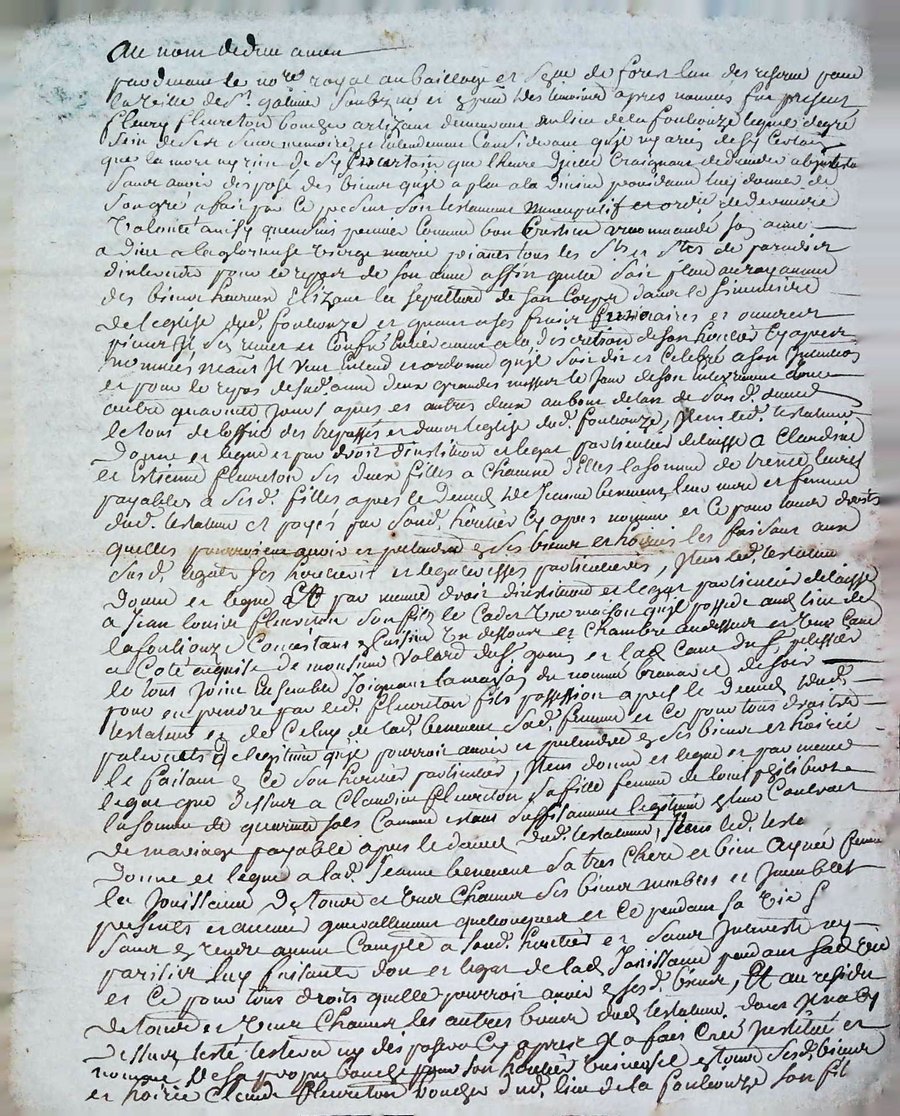 Au nom de dieu amen
pardevant le no.re royal au bailliage et de forest des resorst pour
la ville de s.t galmier soubz.ne et des temoins apres nommés fut present
fleury fleureton artizant demeurant au lieu de la fouliouze lequel de gré
sain de ses sens memoire et entendement Considerant quil ny a rien de sy Certain
que la mort ny rien de sy Incertain que l'heure dicelle Craignant de deceder
sans avoir disposé des biens quil a plu a la divine providence luy donner de
son gré a fait par ce present son testament nuncupatif et ordre de derniere
volonté Comme bon Crestien a recommandé son ame
a dieu a la glorieuse vierge marie priant tous les s.ts et s.tes de paradis
dinterceder pour le repos de son ame affin quelle soit au royaume
des bien heureux Elizant la sepulture de son Corps dans le Simmetiere
de l'eglise dud. fouliouze et quant a ses frais funeraires et oeuvres
pieuses sen remet a la discretion de son heritier Cy apres
nommé neant.s Il veut entend et ordonne quil soit dit et celebré a son Intention
et pour le repos de sad. ame deux grandes messes le jour de son enterrement
autre quarante jours apres et autres deux au bout de lan de son d. deceds
le tout de loffice des trepassés et dans leglise dud. fouliouze, Item led. testateur
donne et legue et par droit dinstitution et legat particulier delaisse a Claudine
et Estienne fleureton ses deux filles a chacune delles la somme de trente livres
payables a sesd. filles apres le deceds de Jeanne benevent leur mere et femme
dud. testateur et payés par sond. heritier Cy apres nommé et ce pour tous droits
quelles pourroient avoir et pretendre ses biens et hoiries les faisant aux
susd. legats ses heritieres et legataires particulieres, Item led. testateur
donne et legue et par meme droit dinstitution et legat particulier delaisse
a Jean louis fleureton son fils le Cadet une maison quil possede aud. lieu de
la fouliouze Consistant Cuisine un dessous et chambre au dessus et une Cave
a Coté acquise de monsieur valard et lad. Cave du s.r pelissier
le tout joint Ensemble Joignant la maison du nommé de soir
pour en prendre par led. fleureton fils possession apres le deceds dud.
testateur et de celuy de lad. benevent sad. femme et ce pour tous droits
paternels et legitime quil pourroit avoir et pretendre ses biens et hoirie
le faisant ce son heritier particulier, Item donne et legue et par meme
legat que dessus a Claudine fleureton sa fille femme de louis philibert
la somme de quarante sols Comme estant suffisamment legitimée Contrat
de mariage payable apres le deceds dud. testateur, Item led. testa
donne et legue a lad. Jeanne benevent sa tres chere et bien aymée femme
la Jouissance de tous et uns Chacuns ses biens meubles et Immeubles
presents et avenir generallement quelconques et ce pendant sa vie
sans rendre aucun Compte a sond. heritier et sans Inventaire ny
luy faisant don et legat de lad. Jouissance pendant sad. vie
et ce pour tous droits quelle pourroit avoir sesd. biens, Et au residu
de tous et uns Chacuns les autres biens dud. testateur dont Il na Cy
dessus testé testera ny disposera Cy apres Il a fait Creé Institué et
nommé de sa propre bouche pour son heritier universel tous sesd. biens
et hoirie Claude fleureton dud. lieu de la fouliouze son fils